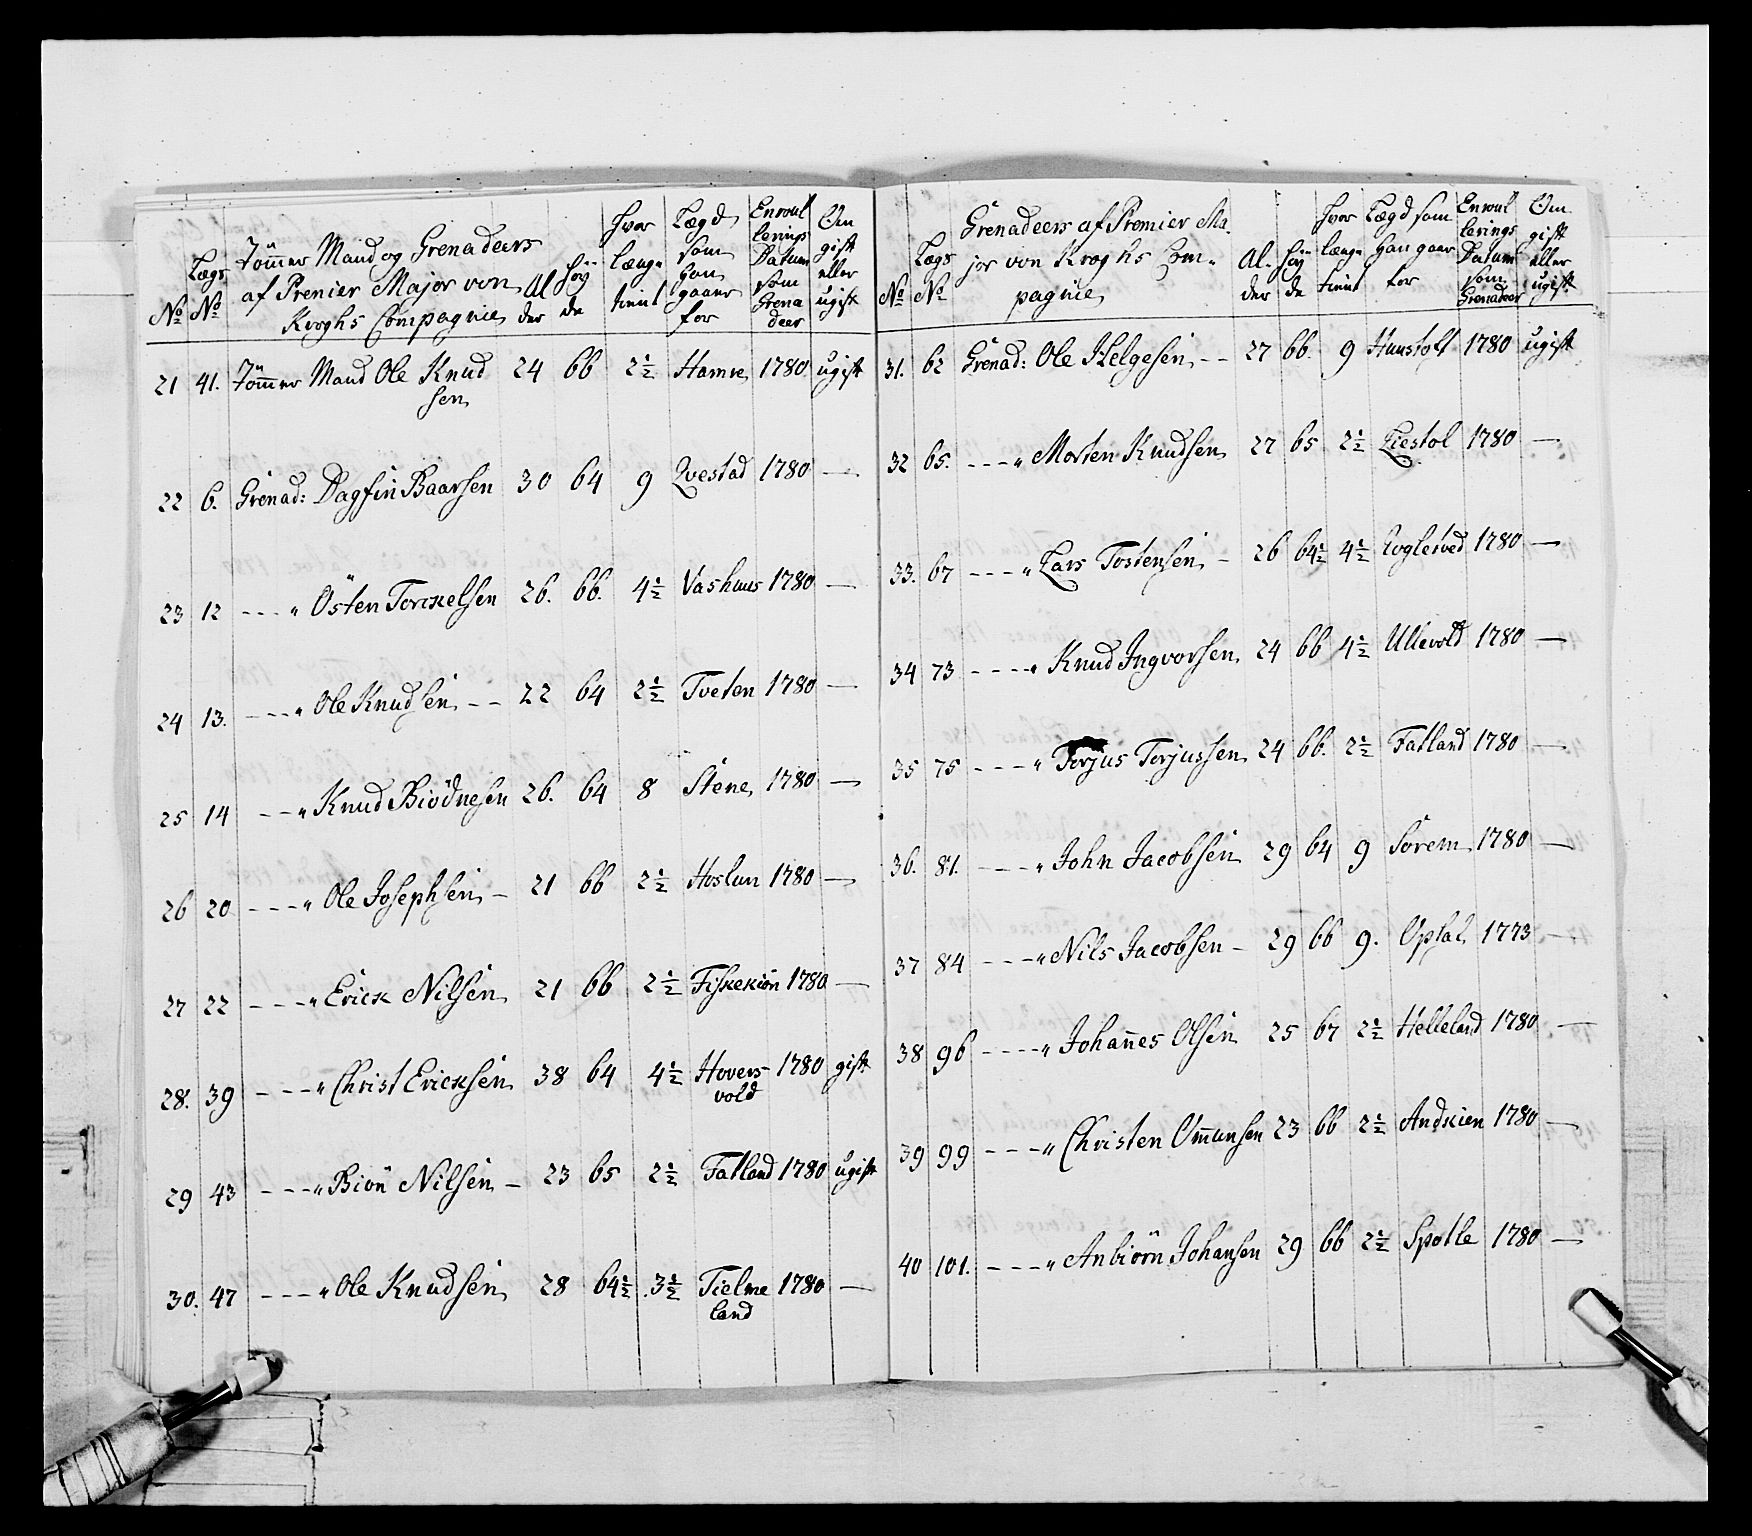 No | Lægs No | Tömmer Mand og Grenadeers af Premier Major von Kroghs Compagnie | Al der | Höÿ de | Hvor længe tient | Lægd som Han gaaer for | Enroul lerings Datum som Grena deer | Om gift eller ugift
21 | 41. | Tömmer Mand Ole Knud sen | 24 | 66 | 2½ | Hamre | 1780 | ugift
22 | 6. | Grenad: Dagfin Baarsen | 30 | 64 | 9 | Qvestad | 1780 | —
23 | 12 | - - - " Östen Torckelsen | 26. | 66. | 4½ | Vashuus | 1780 | —
24 | 13. | - - - " Ole Knudsen - - | 22 | 64 | 2½ | Tveten | 1780 | —
25 | 14 | - - " Knud Biödnesen | 26. | 64 | 8 | Stene | 1780 | —
26 | 20 | - - - " Ole Josephsen - | 21 | 66 | 2½ | Hoslun | 1780 | —
27 | 22 | - - - " Erick Nilsen | 21 | 66 | 2½ | Fiskekiön | 1780 | —
28. | 39 | - - - " Christ Ericksen | 38 | 64 | 4½ | Hovers vold | 1780 | gift
29 | 43 | - - - " Biön Nilsen - | 23 | 65 | 2½ | Fatland | 1780 | ugift
30. | 47 | - - - " Ole Knudsen | 28 | 64½ | 3½ | Tielme land | 1780 | —
No | Lægs No | Grenadeers af Premier Ma- jor von Kroghs Com- pagnie | Al- der | Höÿ de | Hvor længe tient | Lægd som Han gaar for | Enroul lerings Datum som Grenadeer | Om gift eller ugift
31. | 62 | Grenad: Ole Helgesen - - | 27 | 66. | 9 | Huustoft | 1780 | ugift
32 | 65. | - - - " Morten Knudsen | 27 | 65 | 2½ | Liestol | 1780 | —
33. | 67 | - - - " Lars Tostensen - | 26 | 64½ | 4½ | | 1780 | —
34 | 73 | - - - - " Knud Ingvorsen | 24 | 66 | 4½ | Ullevold | 1780 | —
35 | 75 | - - - - " Torjus Torjussen | 24 | 66. | 2½ | Fatland | 1780 | —
36. | 81. | - - - - " John Jacobsen | 29 | 64 | 9 | Sorem | 1780 | —
37 | 84 | - - - - " Nils Jacobsen - | 29 | 66 | 9. | Opsal | 1773 | —
38 | 96 | - - - - " Johan̄es Olsen | 25 | 67 | 2½ | Helleland | 1780 | —
39 | 99 | - - - - " Christen Om̄unsen | 23 | 66 | 2½ | Andkien | 1780 | —
40 | 101. | - - - - " Anbiörn Johansen | 29 | 66 | 2½ | Spotle | 1780 | —